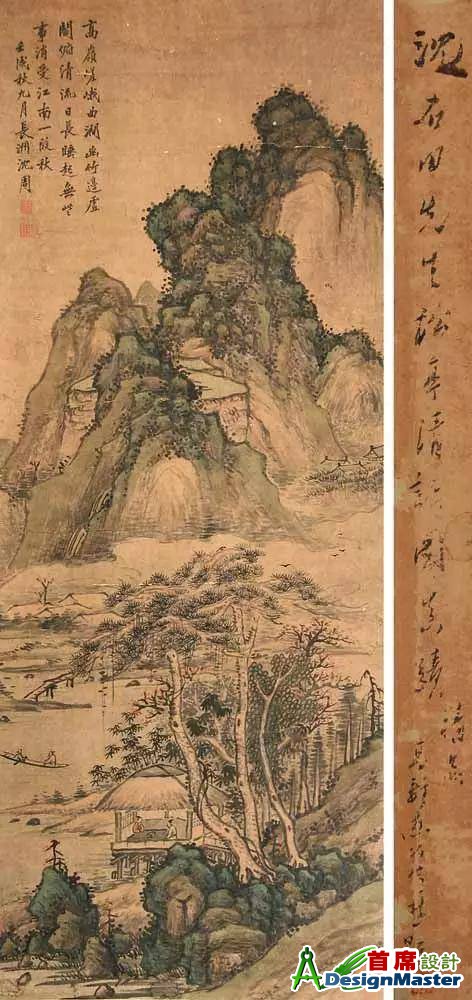 高嶺嵯峨曲澗幽竹邊虛
閣俯清流日長睡起無些
事消受江南一段秋
壬戌秋九月長洲沈周
沈石田先生松亭清話圖真蹟
首席設計
ADesignMaster